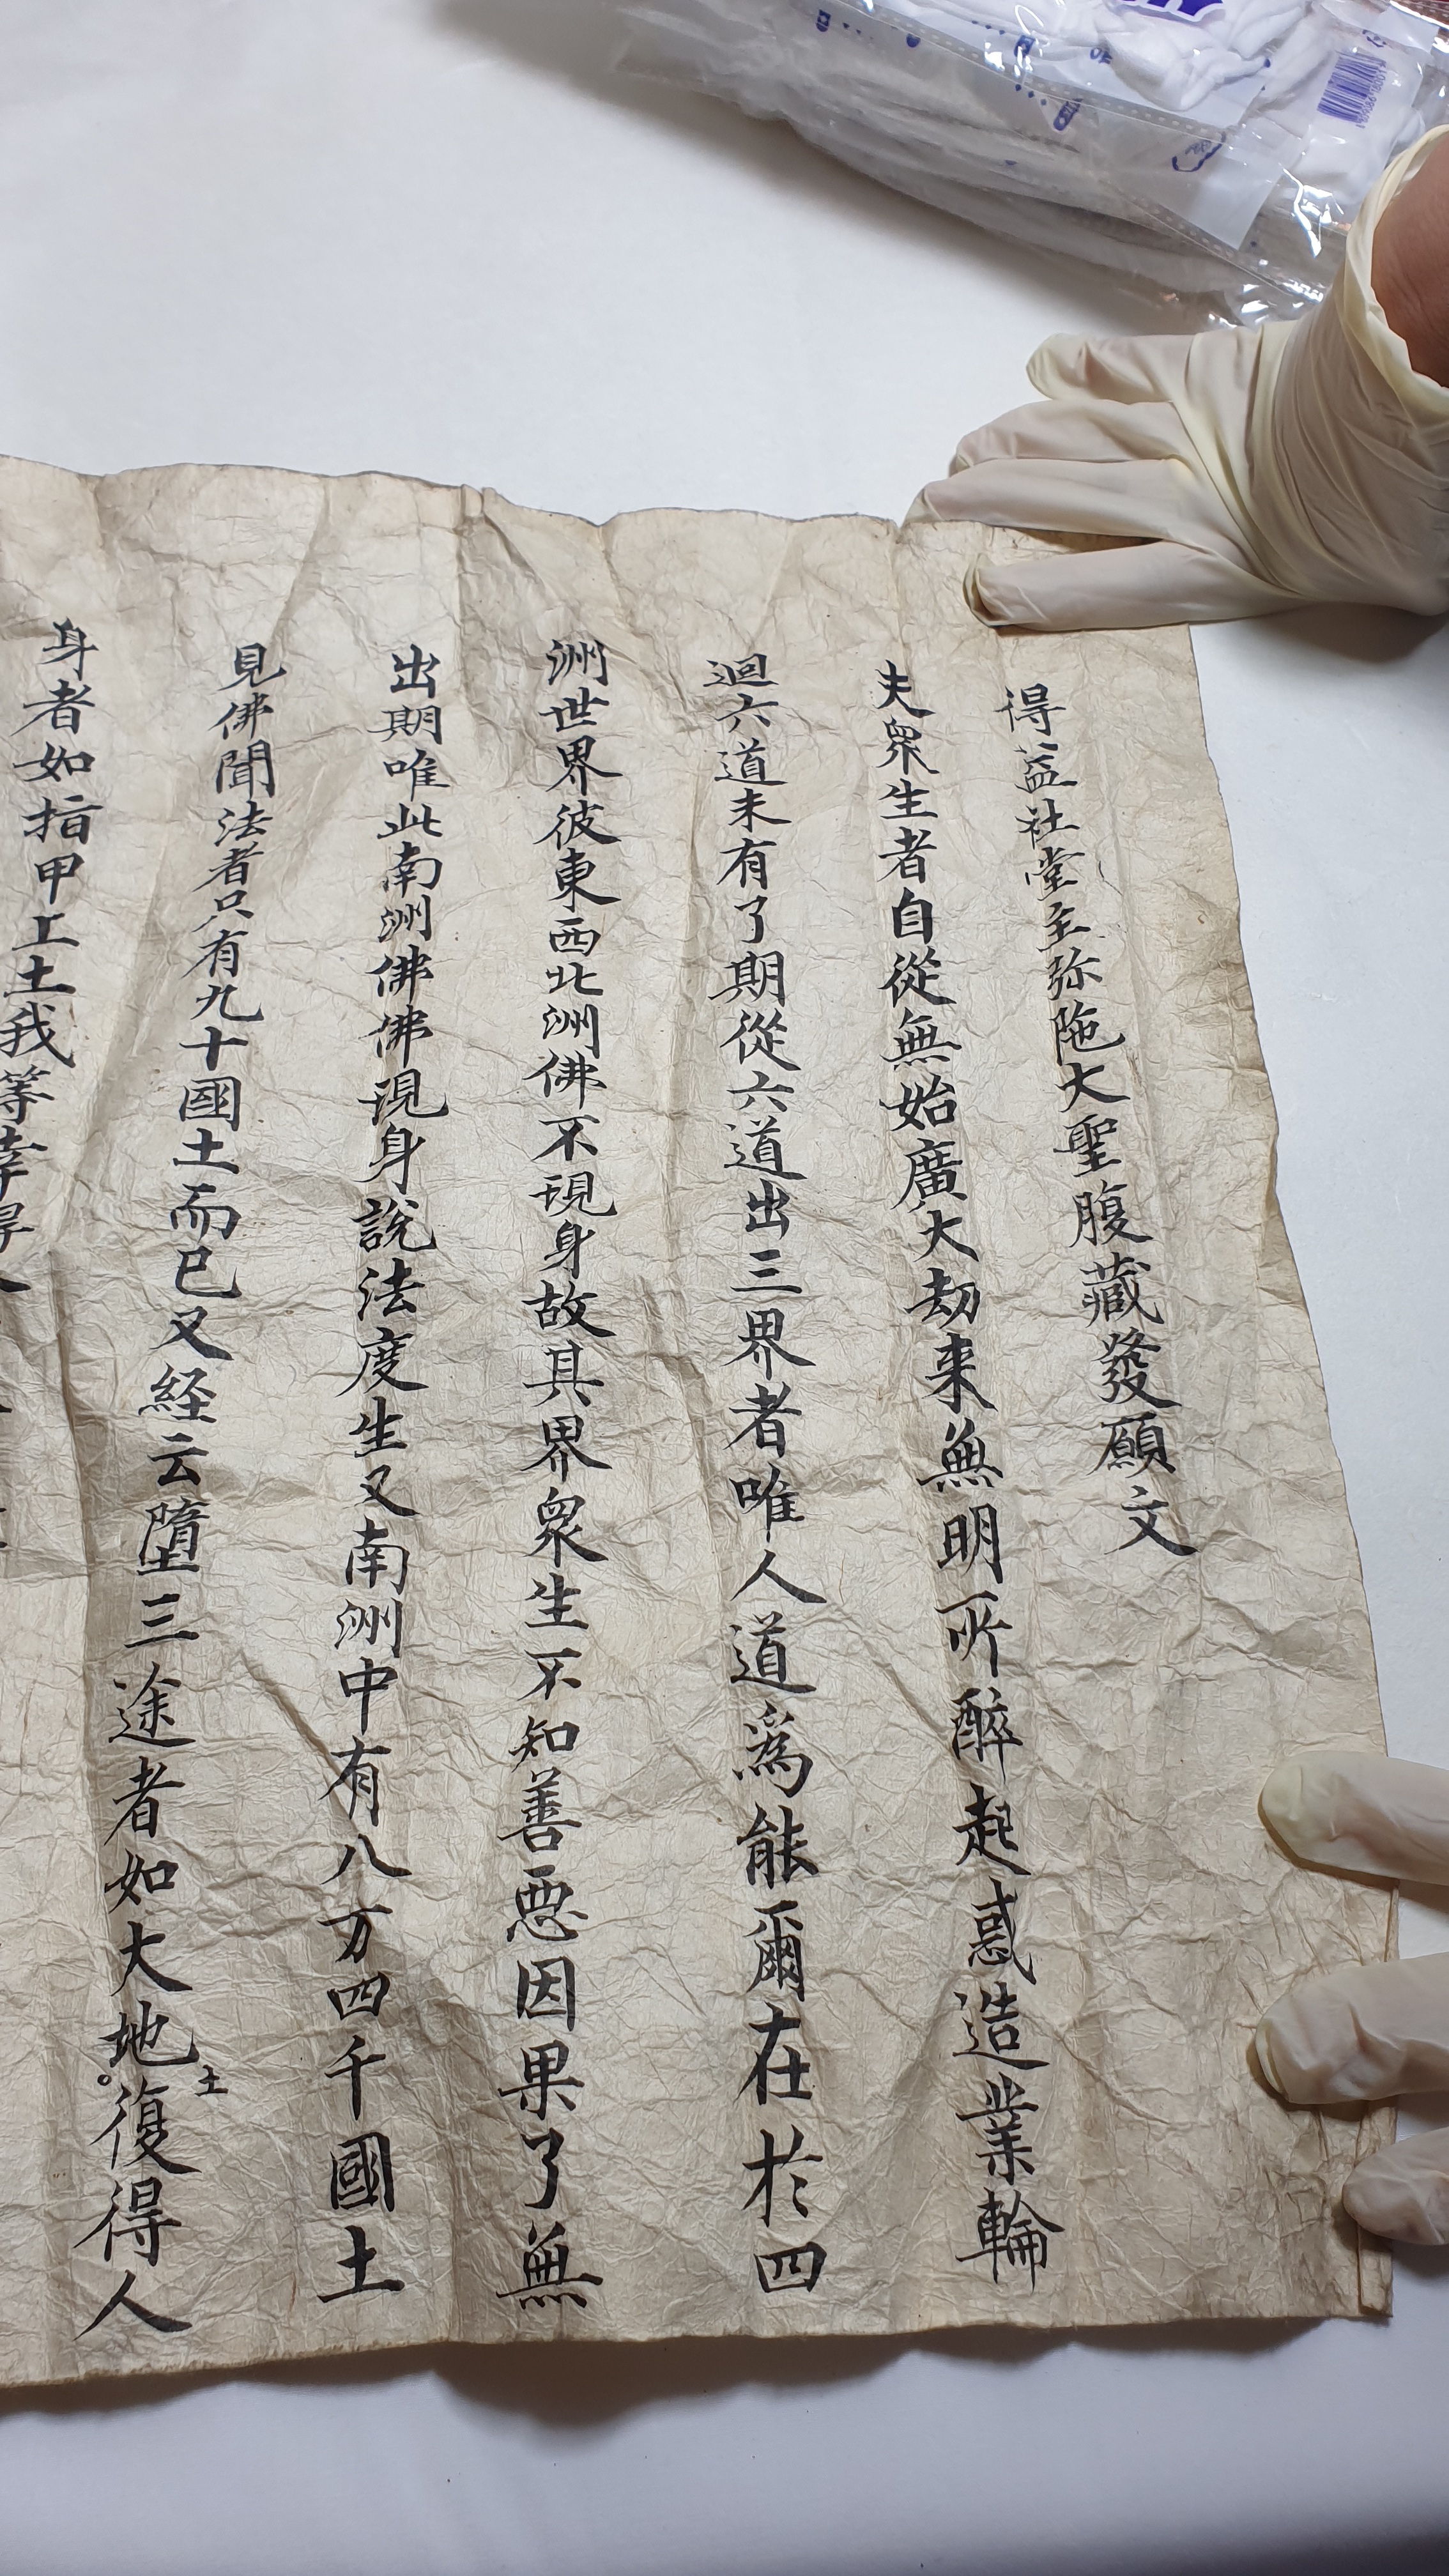 得益社堂主弥陁大聖腹藏發願文
夫衆生者自從無始廣大劫来無明所醉起惑造業輪
迴六道未有了期從六道出三界者唯人道爲能爾在於四
洲世界彼東西北洲佛不現身故其界衆生不知善悪因果了無
出期唯此南洲佛佛現身說法度生又南洲中有八万四千國土
見佛聞法者只有九十國土而已又経云墮三途者如大地土復得人
身者如指甲上土我等幸得人